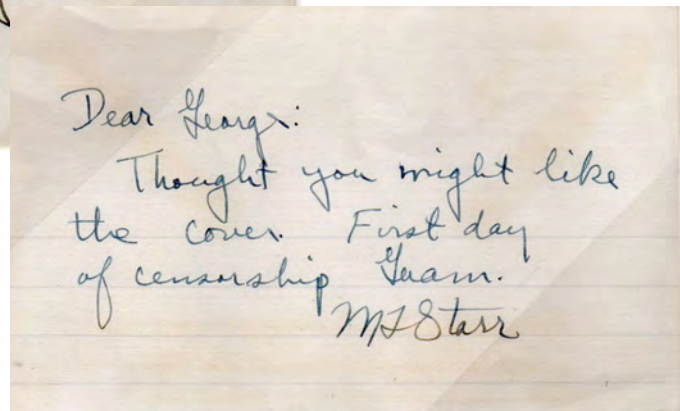 Dear George:
Thought you might like
the cover. First day
of censorship Guam.
MLStarr